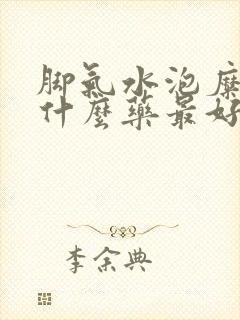 脚氣水泡糜
什麼藥最好
李余典